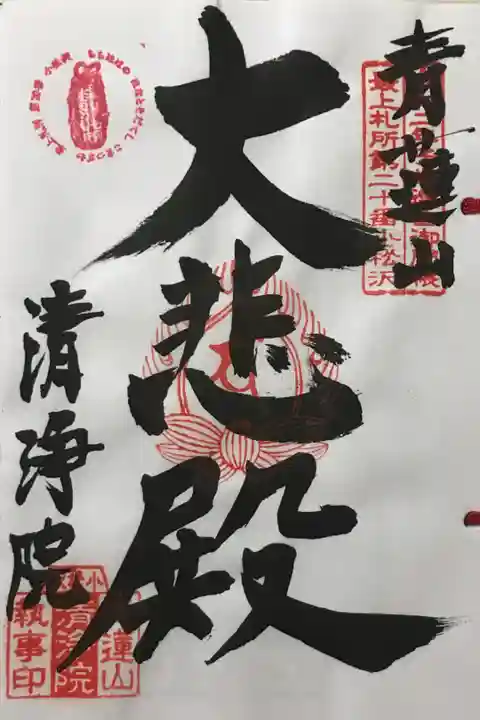 青蓮山
最上札所第二十番小松沢
大悲殿
清浄院
蓮山
清浄院
執事印